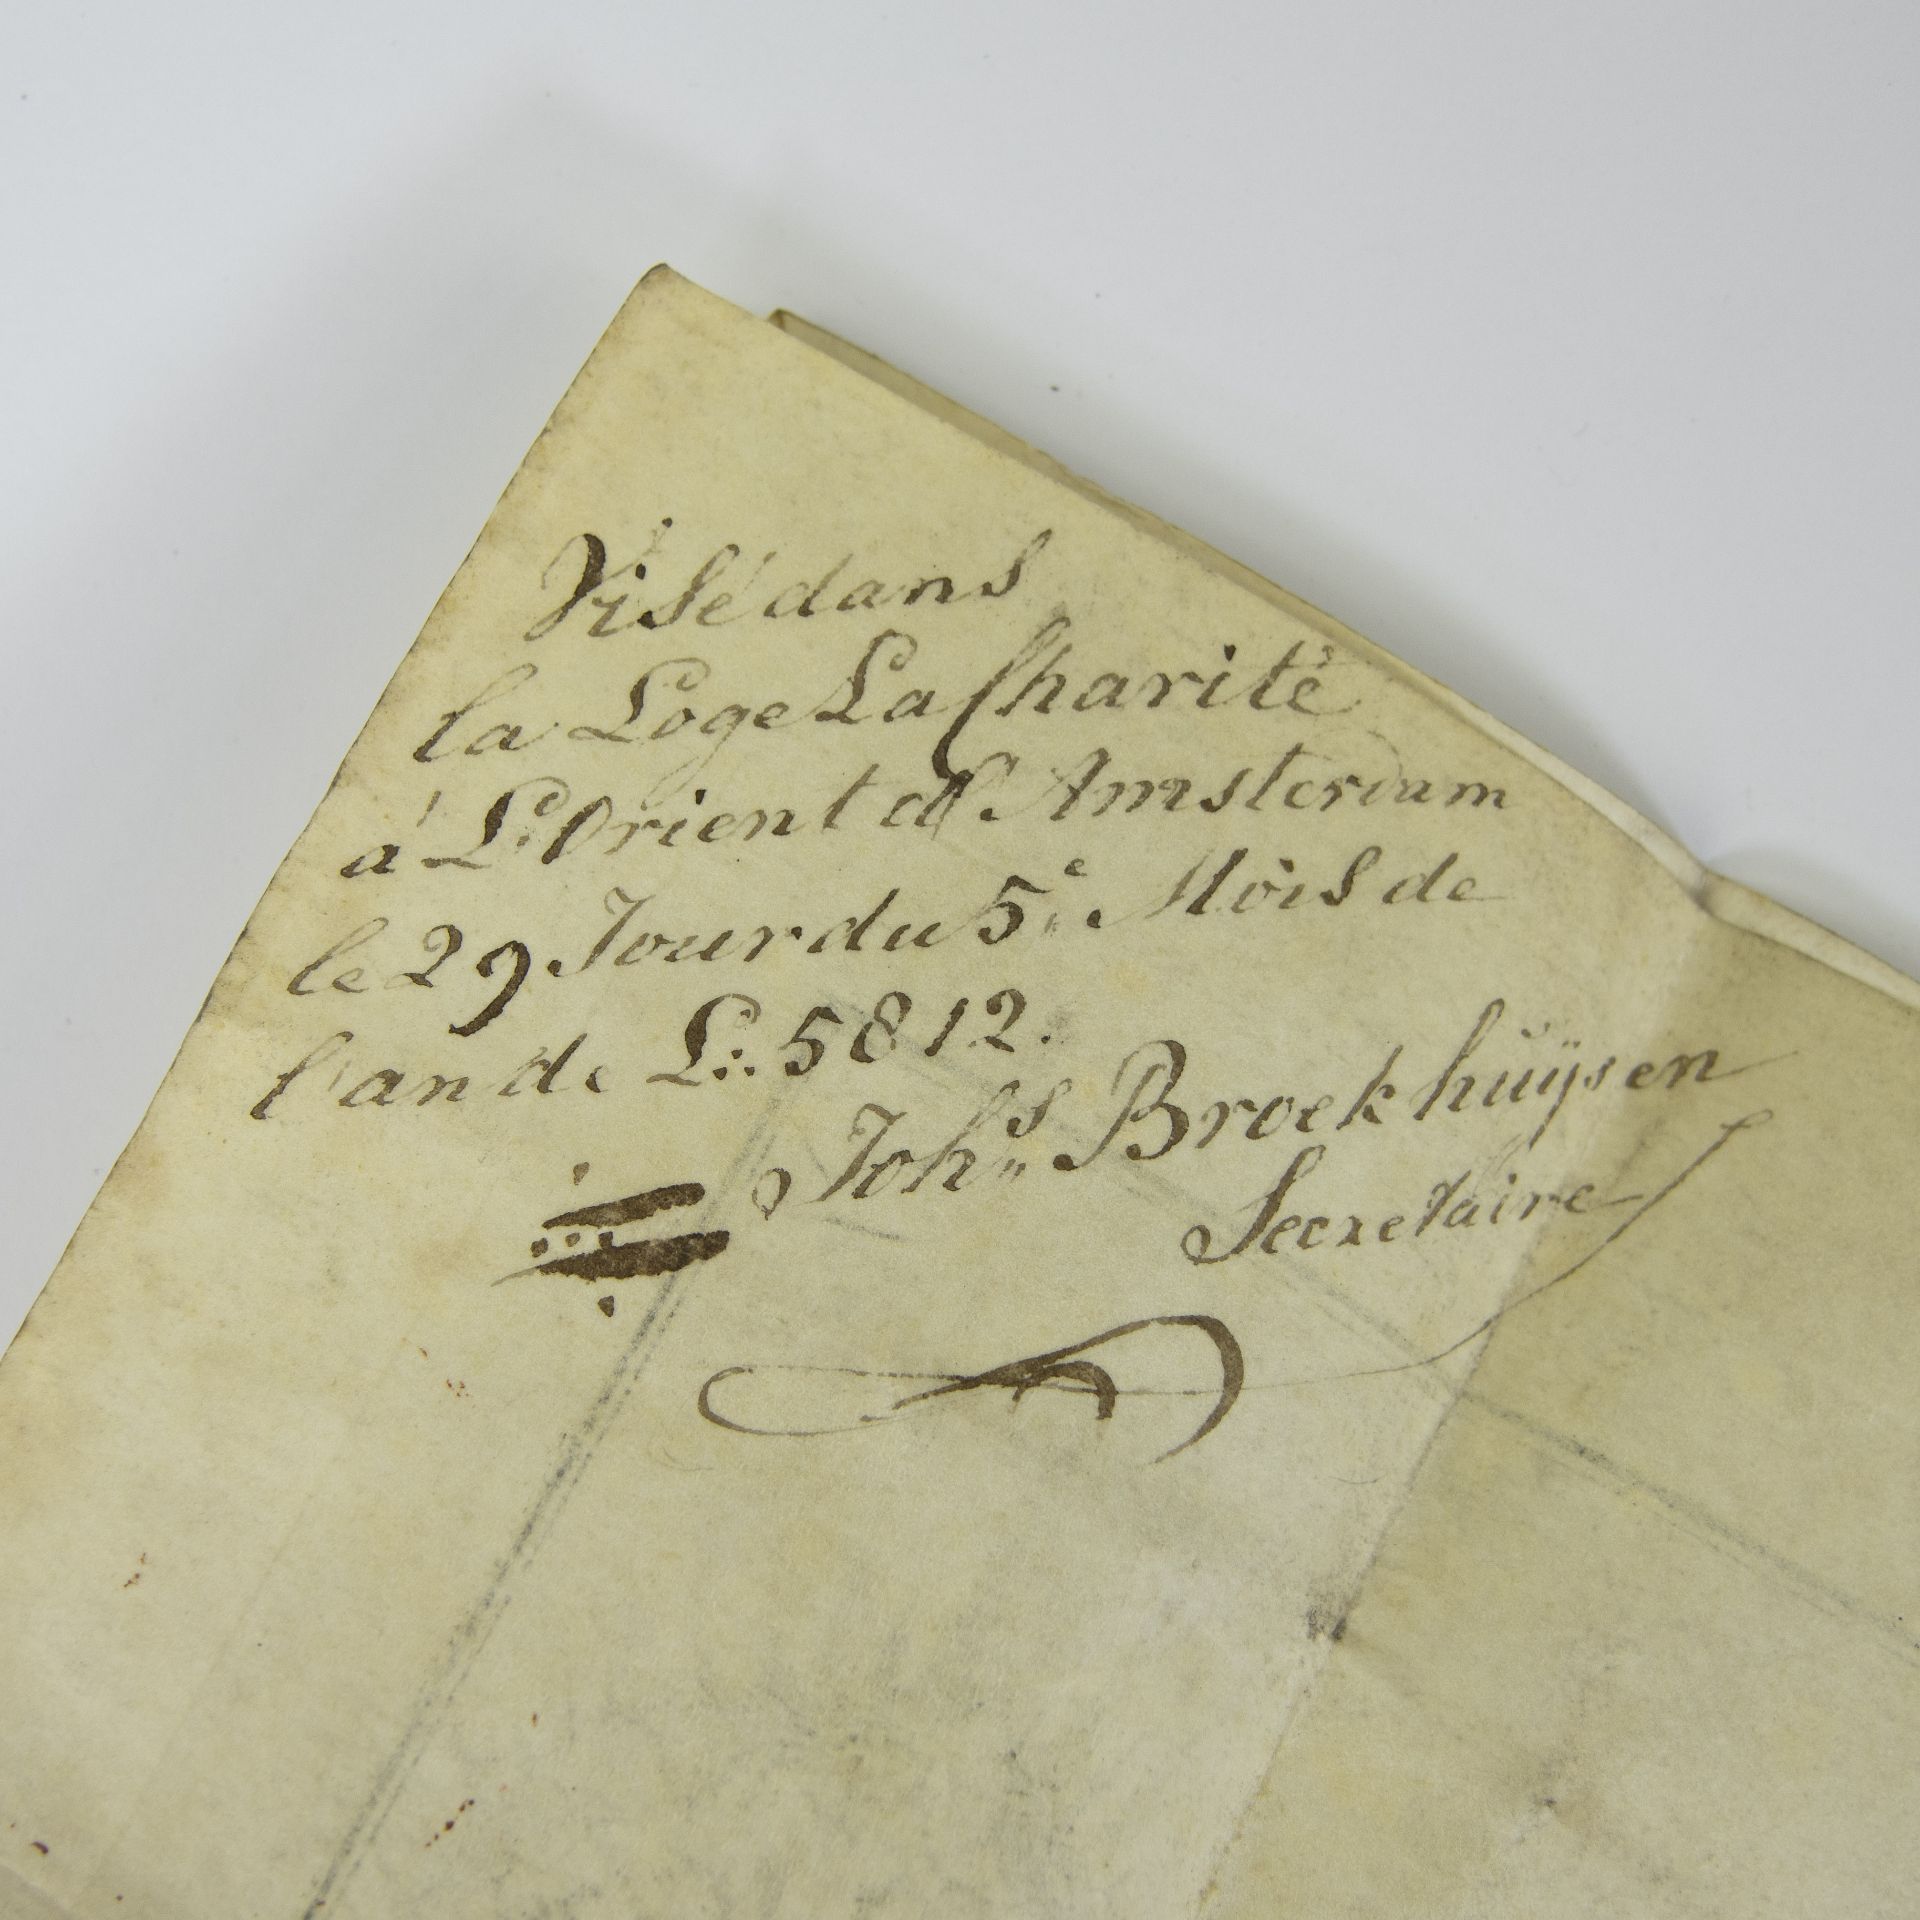 Visé dans
la Loge La Charité
á L'Orient d'Amsterdam
le 29 Jour du 5e Mois de
l'an de L∴ 5812.
Johs Broekhuÿsen
Secretaire